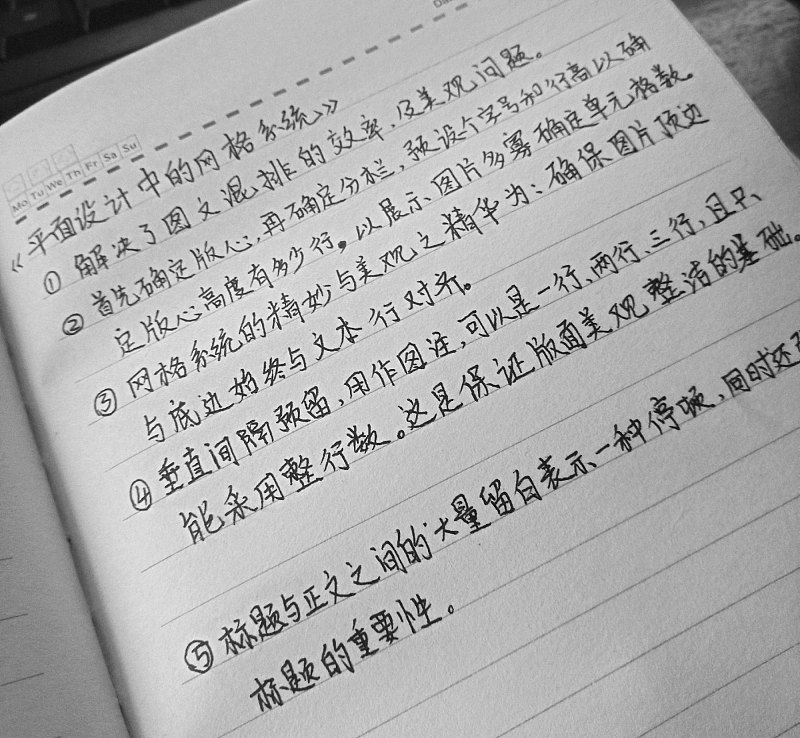 Mo Tu We Th Fr Sa Su
《平面设计中的网格系统》
① 解决了图文混排的效率,及美观问题。
② 首先确定版心,再确定分栏,预设个字号和行高以确
定版心高度有多少行。以展示图片多寡确定单元格数。
③ 网格系统的精妙与美观之精华为:确保图片顶边
与底边始终与文本行对齐。
④ 垂直间隔预留,用作图注,可以是一行、两行、三行,且只
能采用整行数。这是保证版面美观整洁的基础。
⑤ 标题与正文之间的大量留白表示一种停顿,同时还
标题的重要性。